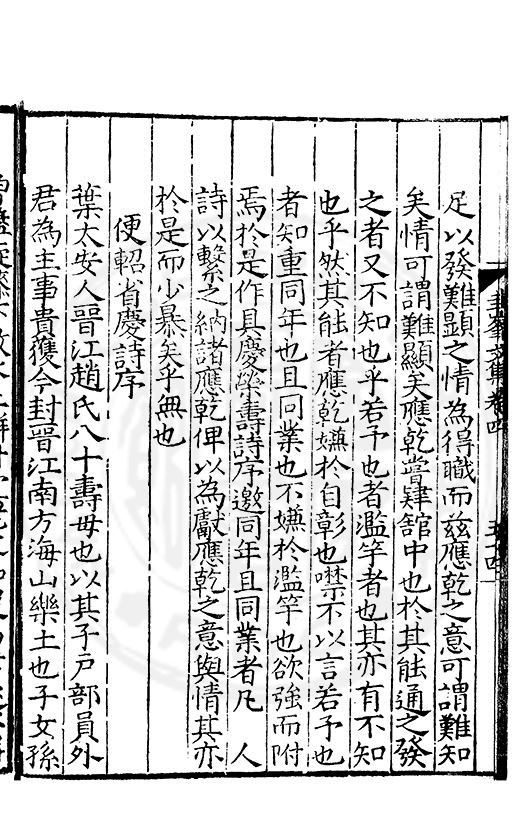 圭峯文集卷四
五十四
足以發難顯之情為得職而兹應乾之意可謂難知
矣情可謂難顯矣應乾嘗肄舘中也於其能通之發
之者又不知也乎若予也者濫竽者也其亦有不知
也乎然其能者應乾嫌於自彰也噤不以言若予也
者知重同年也且同業也不嫌於濫竽也欲強而附
焉於是作具慶榮壽詩序邀同年且同業者凡 人
詩以繫之納諸應乾俾以為獻應乾之意與情其亦
於是而少暴矣乎無也
便軺省慶詩序
葉太安人晉江趙氏八十壽母也以其子戶部員外
君為主事貴獲今封晉江南方海山樂土也子女孫